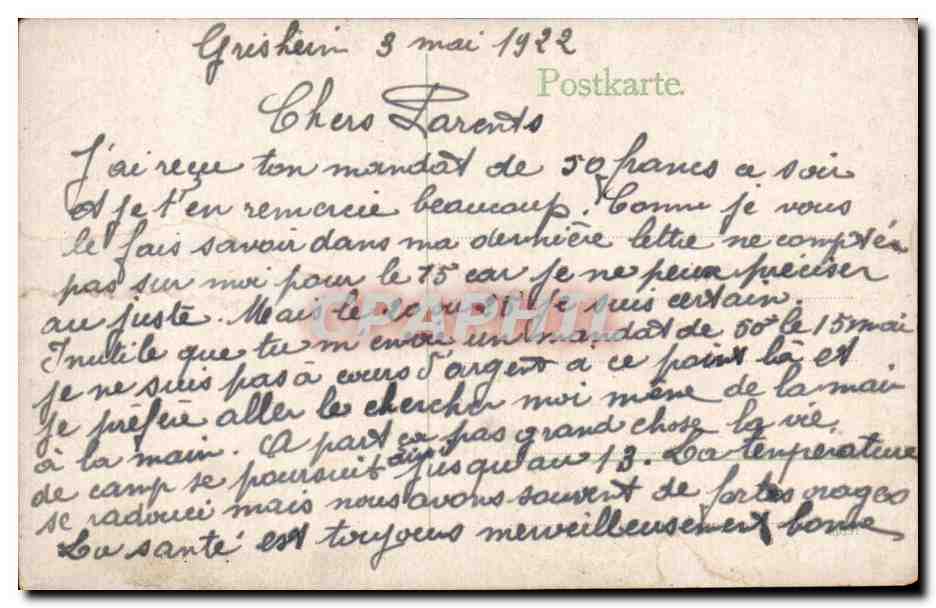 Grisheim 3 mai 1922
Postkarte.
Chers Parents
J'ai reçu ton mandat de 50 francs ce soir
et je t'en remercie beaucoup. Comme je vous
le fais savoir dans ma dernière lettre ne compter
pas sur moi pour le 15 car je ne peux préciser
au juste. Mais le 20 août je suis certain.
Inutile que tu m'envoi un mandat de 50f le 15 mai
je ne suis pas à cours d'argent a ce point là et
je préfère aller le chercher moi même de la main
à la main. A part ça pas grand chose la vie
de camp se poursuit ainsi jusqu'au 13. La température
se radouci mais nous avons souvent de fortes orages
La santé est toujours merveilleusement bonne
CPAPHIL